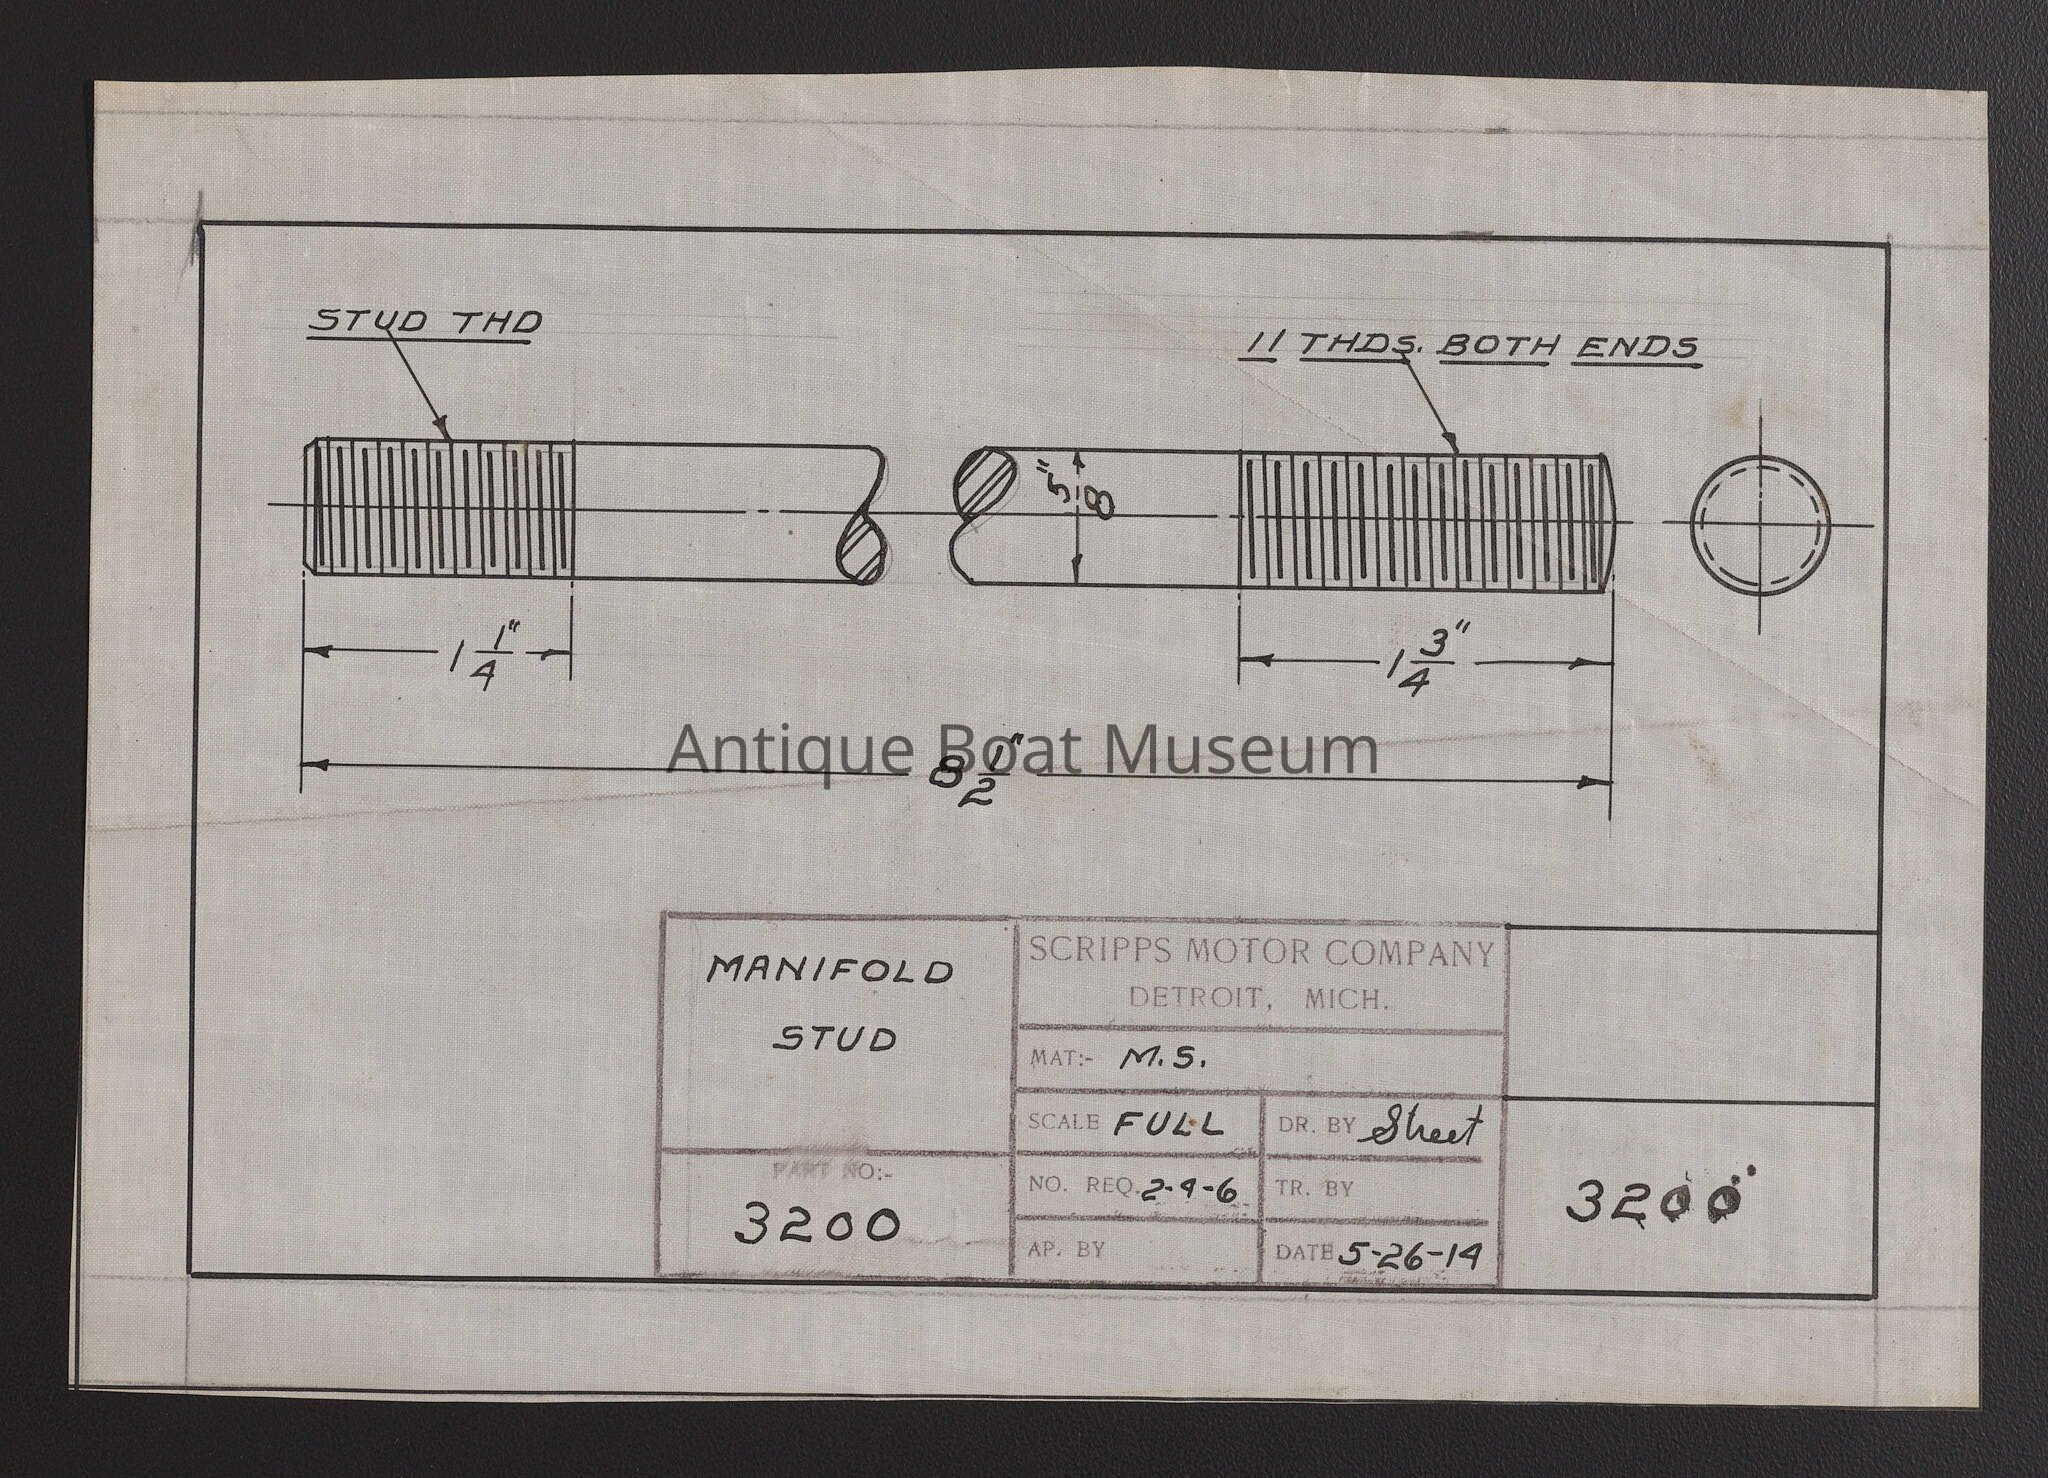 STUD THD
11 THDS. BOTH ENDS
5"/8
1 1/4"
1 3/4"
8 1/2"
Antique Boat Museum
MANIFOLD
STUD
PART NO:-
3200
SCRIPPS MOTOR COMPANY
DETROIT, MICH.
MAT:- M.S.
SCALE FULL
DR. BY Street
NO. REQ. 2-4-6
TR. BY
AP. BY
DATE 5-26-14
3200